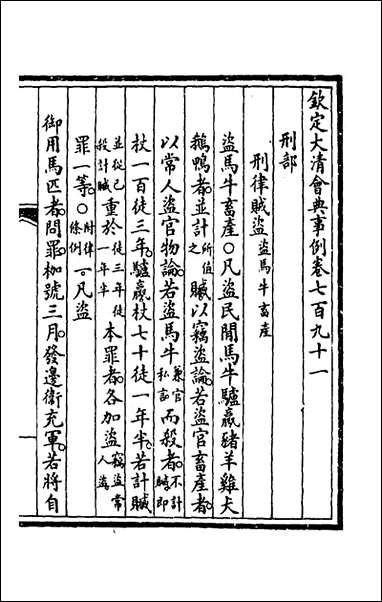 欽定大清會典事例卷七百九十一
刑部
刑律賊盜盜馬牛畜產
盜馬牛畜產○凡盜民閒馬牛驢驘豬羊雞犬
鵝鴨者並計所值之贓以竊盜論若盜官畜產者
以常人盜官物論若盜馬牛兼官私言而殺者不計贓即
杖一百徒三年驢驘杖七十徒一年半若計贓
並從已殺計贓重於徒三年徒一年半本罪者各加盜竊盜常人盜
罪一等○附律條例一凡盜
御用馬匹者問罪枷號三月發邊衞充軍若將自